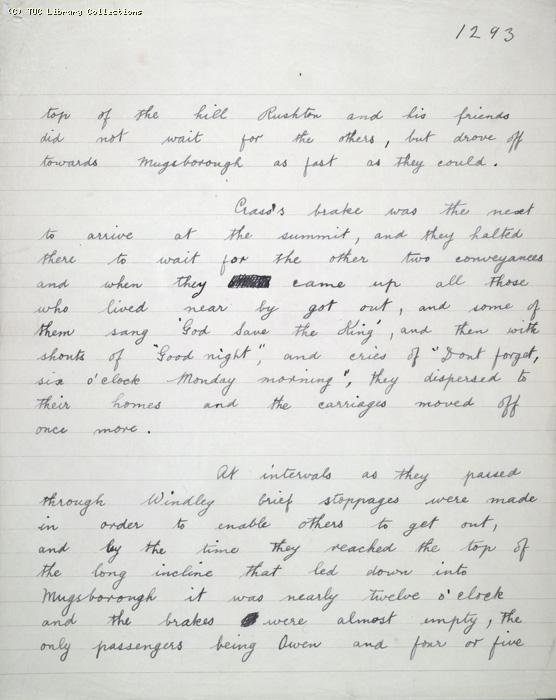 (C) TUC Library Collections
1293
top of the hill Rushton and his friends
did not wait for the others, but drove off
towards Mugsborough as fast as they could.
Crass's brake was the next
to arrive at the summit, and they halted
there to wait for the other two conveyances
and when they came up all those
who lived near by got out, and some of
them sang 'God Save the King', and then with
shouts of "Good night", and cries of "Dont forget,
six o'clock Monday morning", they dispersed to
their homes and the carriages moved off
once more.
At intervals as they passed
through Windley brief stoppages were made
in order to enable others to get out,
and by the time they reached the top of
the long incline that led down into
Mugsborough it was nearly twelve o'clock
and the brakes were almost empty, the
only passengers being Owen and four or five